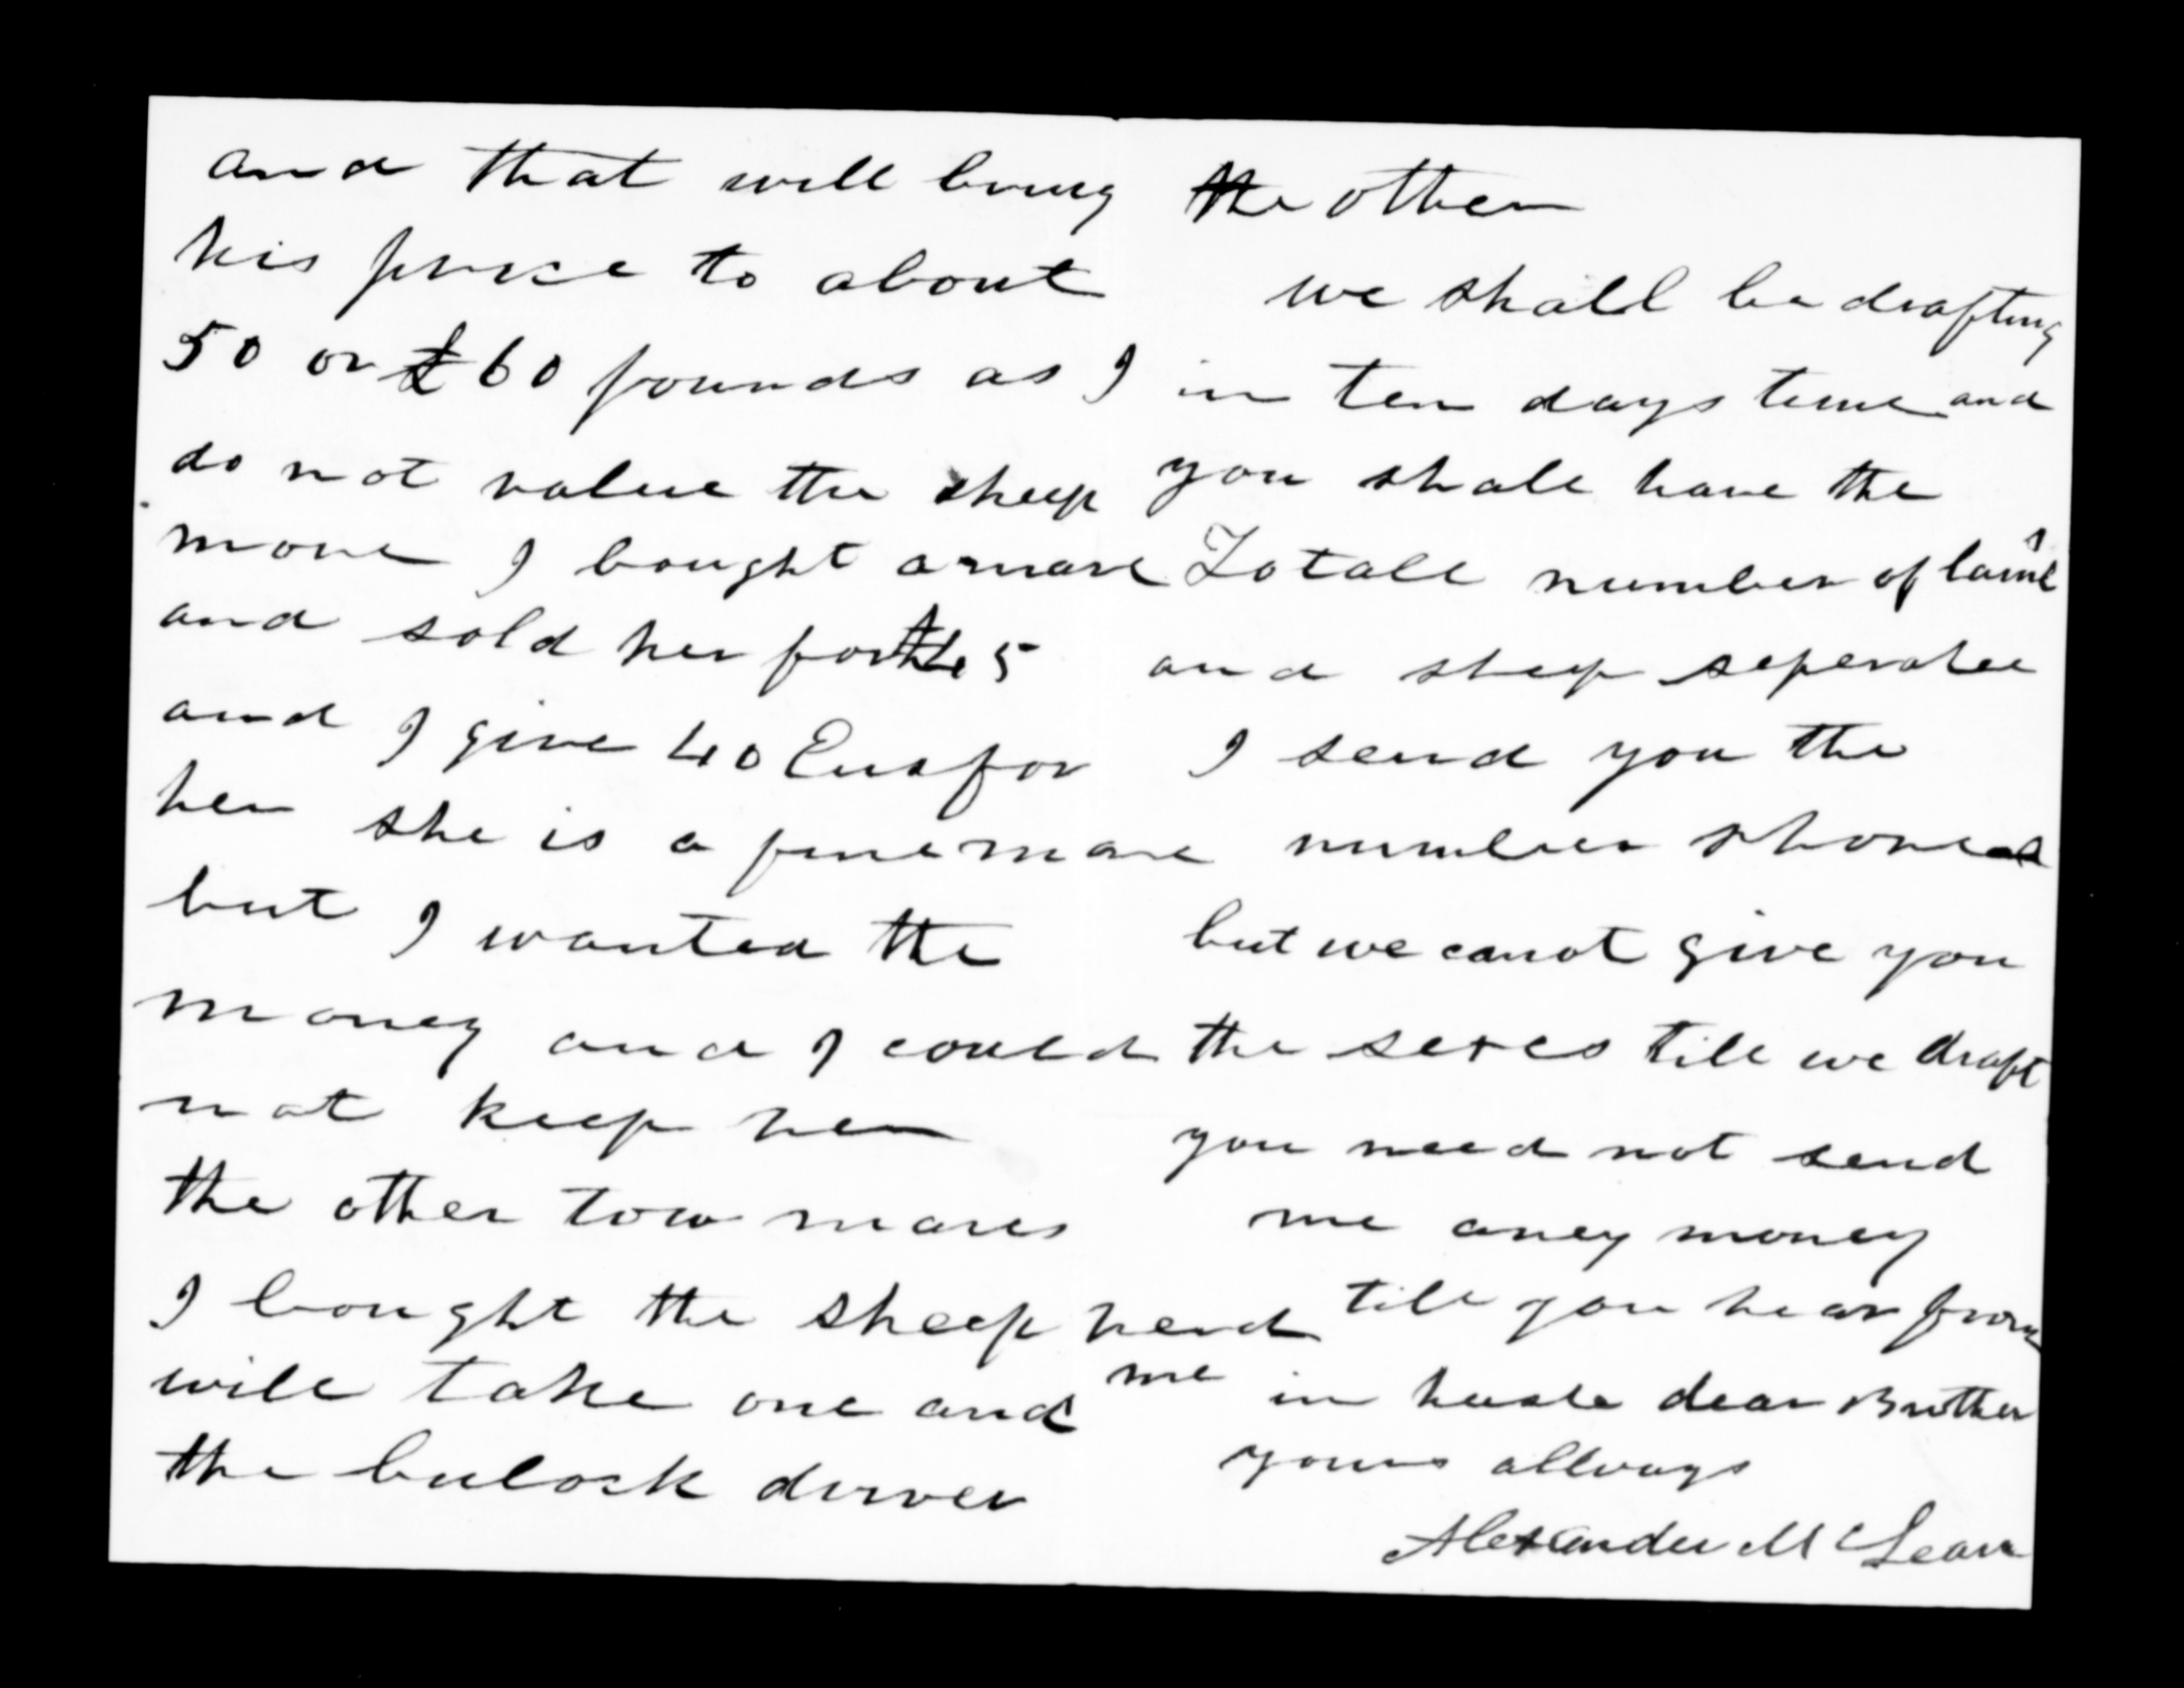 and that will bring
his prise to about
50 or £60 pounds as I
do not value the sheep
more I bought a mare
and sold her for £45
and I give 40 Eus for
her she is a fine mare
but I wanted the
money and I could
not keep her
the other tow mares
I bought the sheep herd
will take one and
the bulock driver
the other
we shall be drafting
in ten days time and
you shall have the
Totall number of lambs
and sheep seperatee
I send you the
number shored
but we canot give you
the sexes till we draft
you need not send
me aney money
till you hear from
me in haste dear Brother
yours allways
Alexander McLean